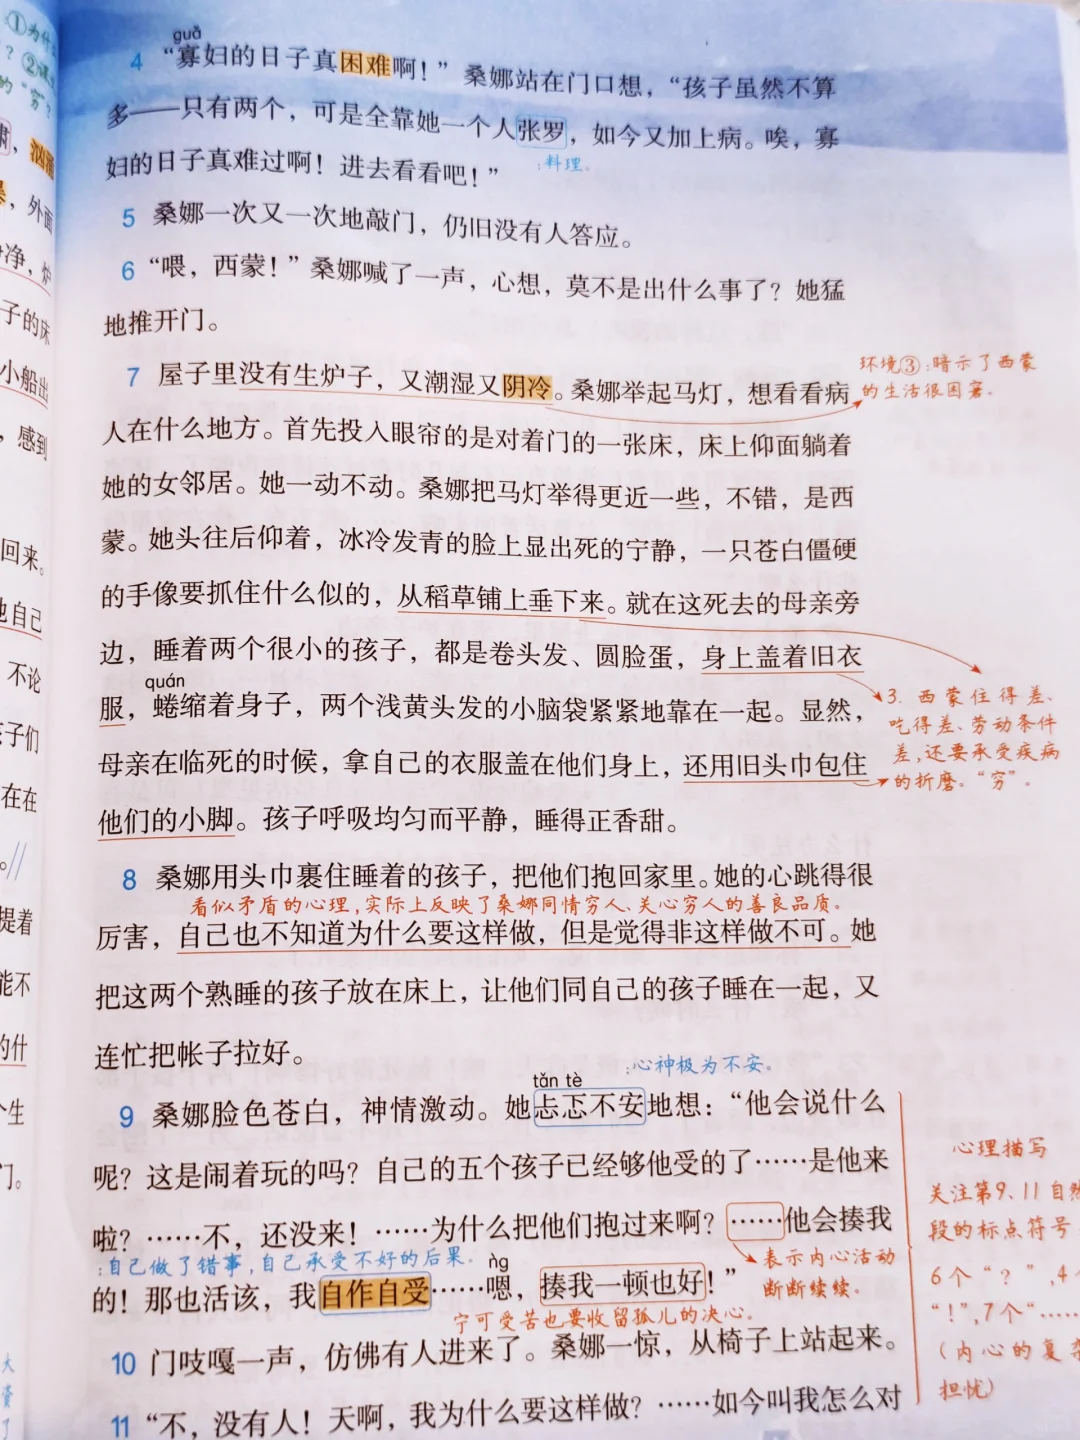 :①为什
? ②课
的“穷?
guǎ
4 “寡妇的日子真困难啊！”桑娜站在门口想，“孩子虽然不算
多——只有两个，可是全靠她一个人张罗，如今又加上病。唉，寡
:料理。
妇的日子真难过啊！进去看看吧！”
5 桑娜一次又一次地敲门，仍旧没有人答应。
6 “喂，西蒙！”桑娜喊了一声，心想，莫不是出什么事了？她猛
地推开门。
7 屋子里没有生炉子，又潮湿又阴冷。桑娜举起马灯，想看看病
环境③:暗示了西蒙
的生活很困窘。
人在什么地方。首先投入眼帘的是对着门的一张床，床上仰面躺着
她的女邻居。她一动不动。桑娜把马灯举得更近一些，不错，是西
蒙。她头往后仰着，冰冷发青的脸上显出死的宁静，一只苍白僵硬
的手像要抓住什么似的，从稻草铺上垂下来。就在这死去的母亲旁
边，睡着两个很小的孩子，都是卷头发、圆脸蛋，身上盖着旧衣
quán
服，蜷缩着身子，两个浅黄头发的小脑袋紧紧地靠在一起。显然，
3. 西蒙住得差、
吃得差、劳动条件
差,还要承受疾病
的折磨。“穷”。
母亲在临死的时候，拿自己的衣服盖在他们身上，还用旧头巾包住
他们的小脚。孩子呼吸均匀而平静，睡得正香甜。
8 桑娜用头巾裹住睡着的孩子，把他们抱回家里。她的心跳得很
看似矛盾的心理,实际上反映了桑娜同情穷人、关心穷人的善良品质。
厉害，自己也不知道为什么要这样做，但是觉得非这样做不可。她
把这两个熟睡的孩子放在床上，让他们同自己的孩子睡在一起，又
连忙把帐子拉好。
:心神极为不安。
tǎn tè
9 桑娜脸色苍白，神情激动。她忐忑不安地想：“他会说什么
呢？这是闹着玩的吗？自己的五个孩子已经够他受的了……是他来
啦？……不，还没来！……为什么把他们抱过来啊？……他会揍我
:自己做了错事,自己承受不好的后果。
ǹg
的！那也活该，我自作自受……嗯，揍我一顿也好！”
表示内心活动
断断续续。
宁可受苦也要收留孤儿的决心。
心理描写
关注第9、11自然
段的标点符号
6个“?”,4个
“!”,7个“……
(内心的复杂
担忧)
10 门吱嘎一声，仿佛有人进来了。桑娜一惊，从椅子上站起来。
11 “不，没有人！天啊，我为什么要这样做？……如今叫我怎么对
，外面
净，炉
子的床
小船出
，感到
回来。
也自己
不论
孩子们
在在
提着
能不
的什
个生
门。